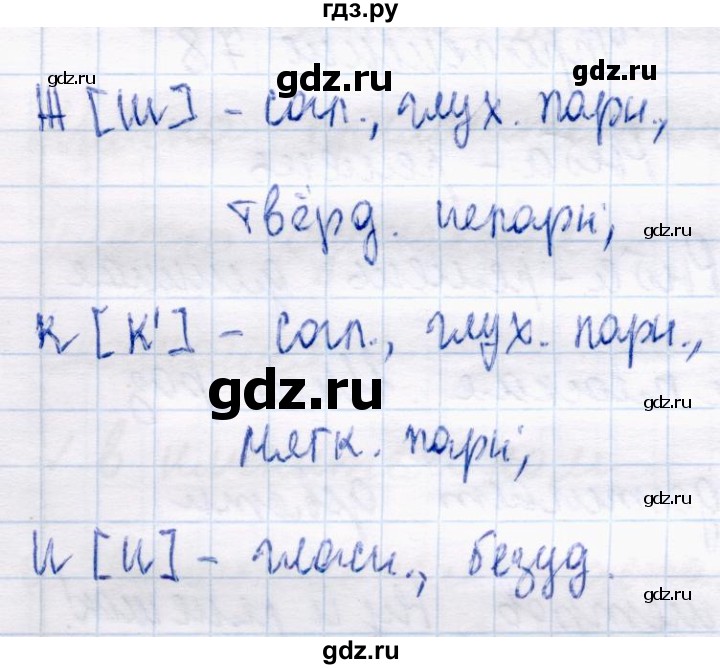 гдз.ру
gdz.ru gdz.ru gdz.ru
Ж [ш] – согл., глух. парн.,
твёрд. непарн.,
gdz.ru
к [к'] – согл., глух. парн.,
gdz.ru gdz.ru
мягк. парн.,
gdz.ru
и [и] – гласн., безуд.
gdz.ru
gdz.ru